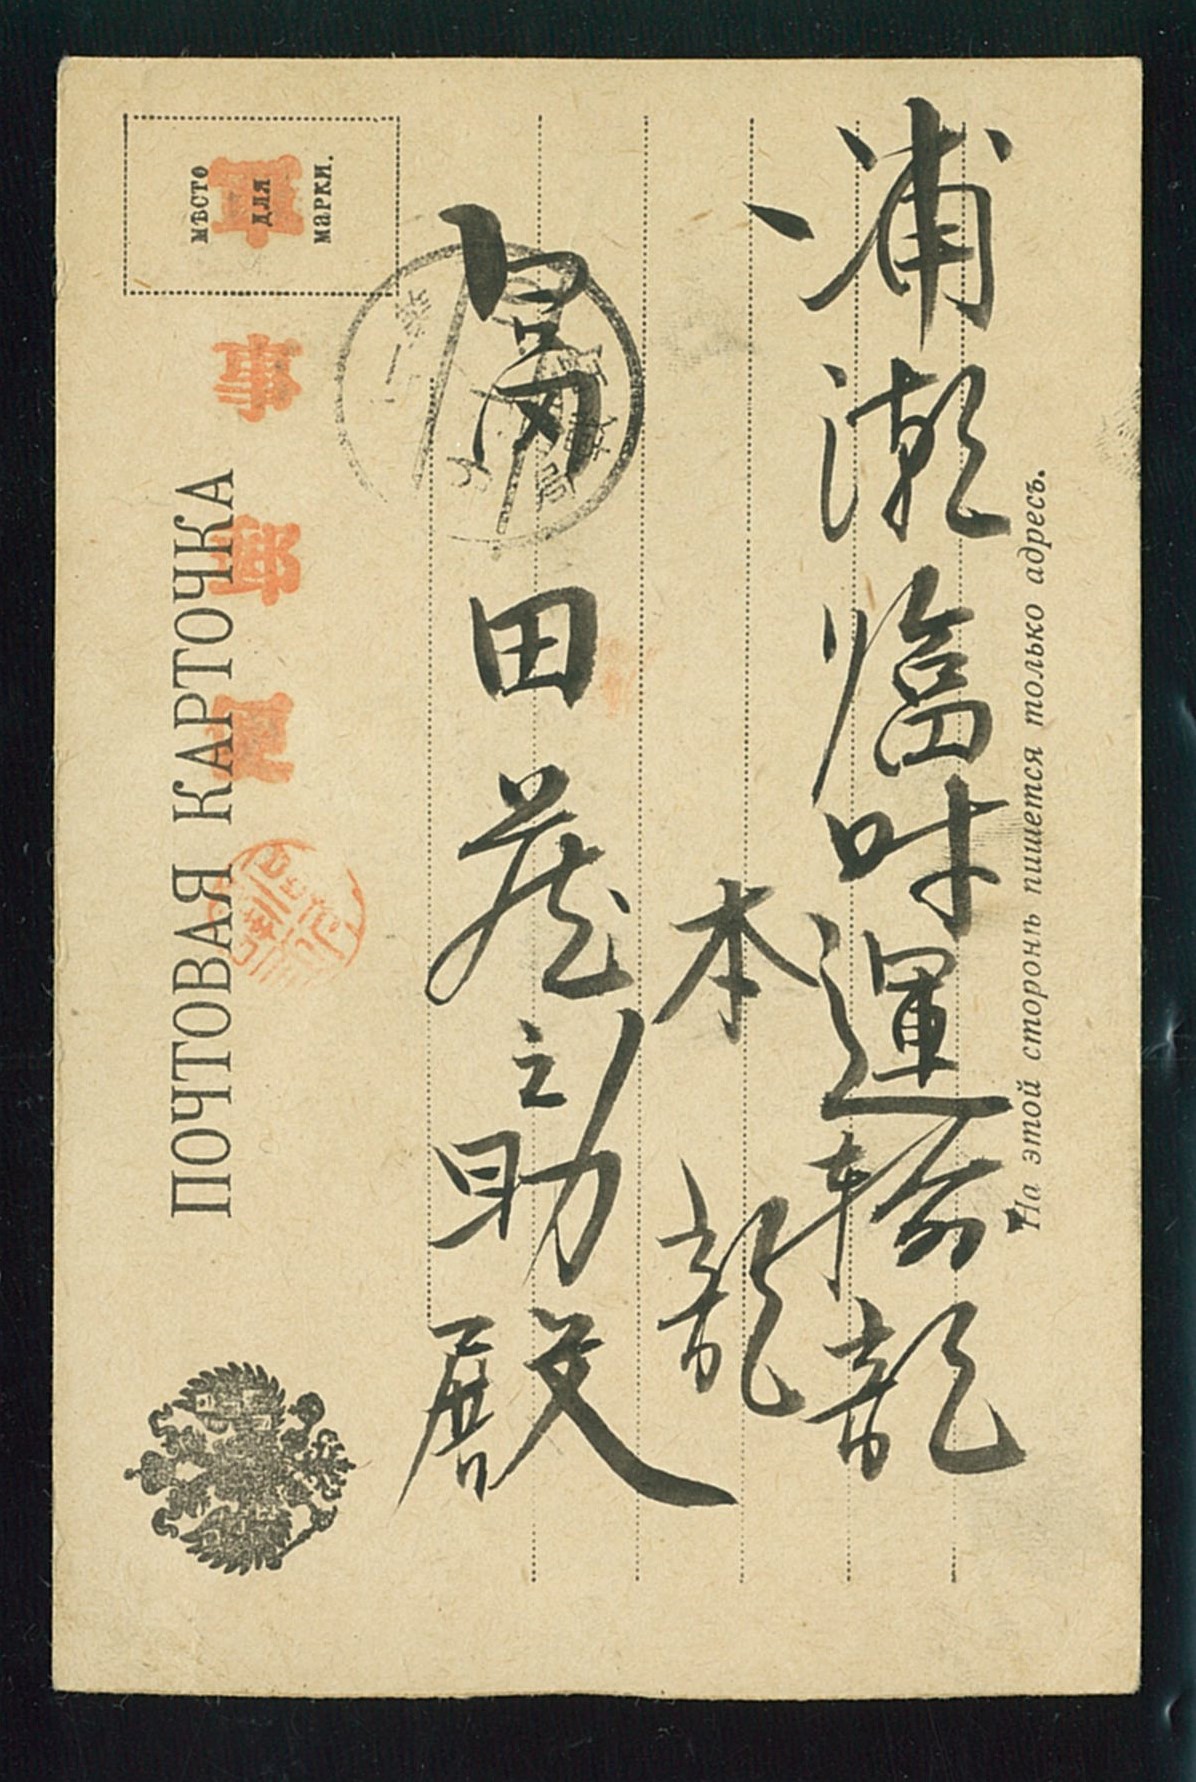 ПОЧТОВАЯ КАРТОЧКА
МѢСТО
ДЛЯ
МАРКИ.
軍事郵便
浦潮臨時運輸部
本部
富田
之助殿
На этой сторонѣ пишется только адресъ.